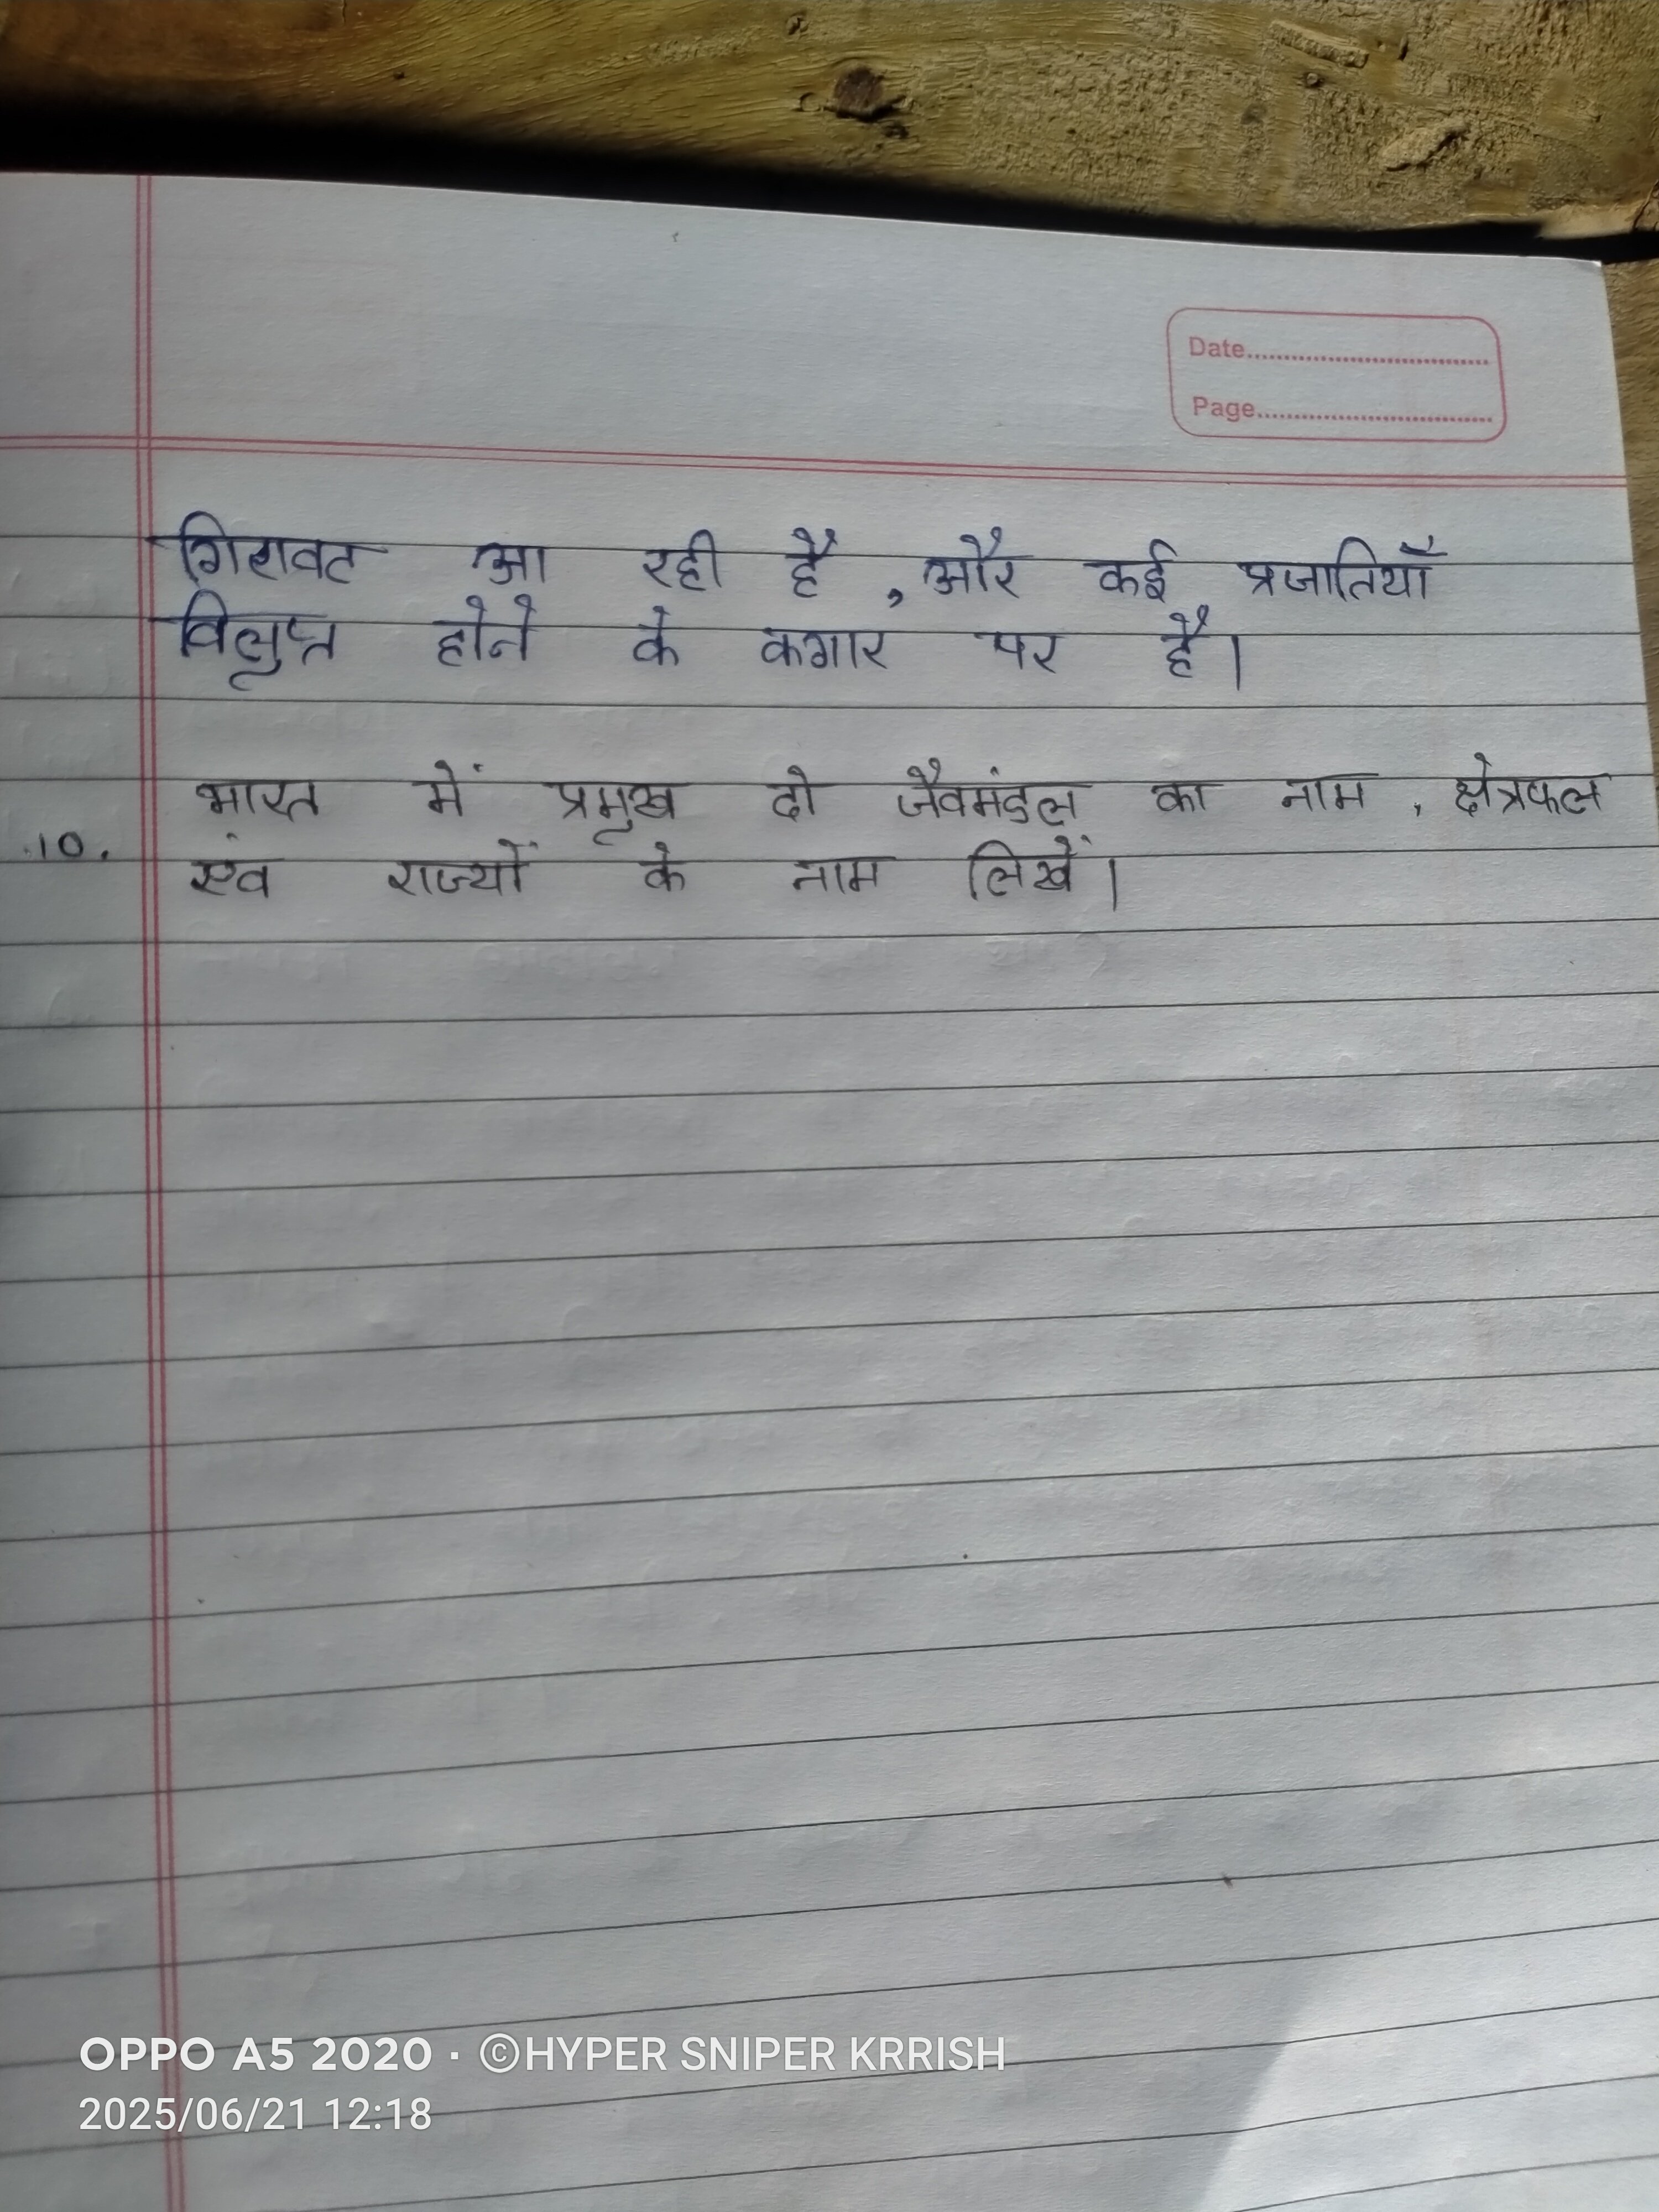 Date
Page
गिरावट आ रही है, और कई प्रजातियाँ
विलुप्त होने के कगार पर है।
भारत में प्रमुख दो जैवमंडल का नाम, क्षेत्रफल
10. एंव राज्यों के नाम लिखें।
OPPO A5 2020 · ©HYPER SNIPER KRRISH
2025/06/21 12:18